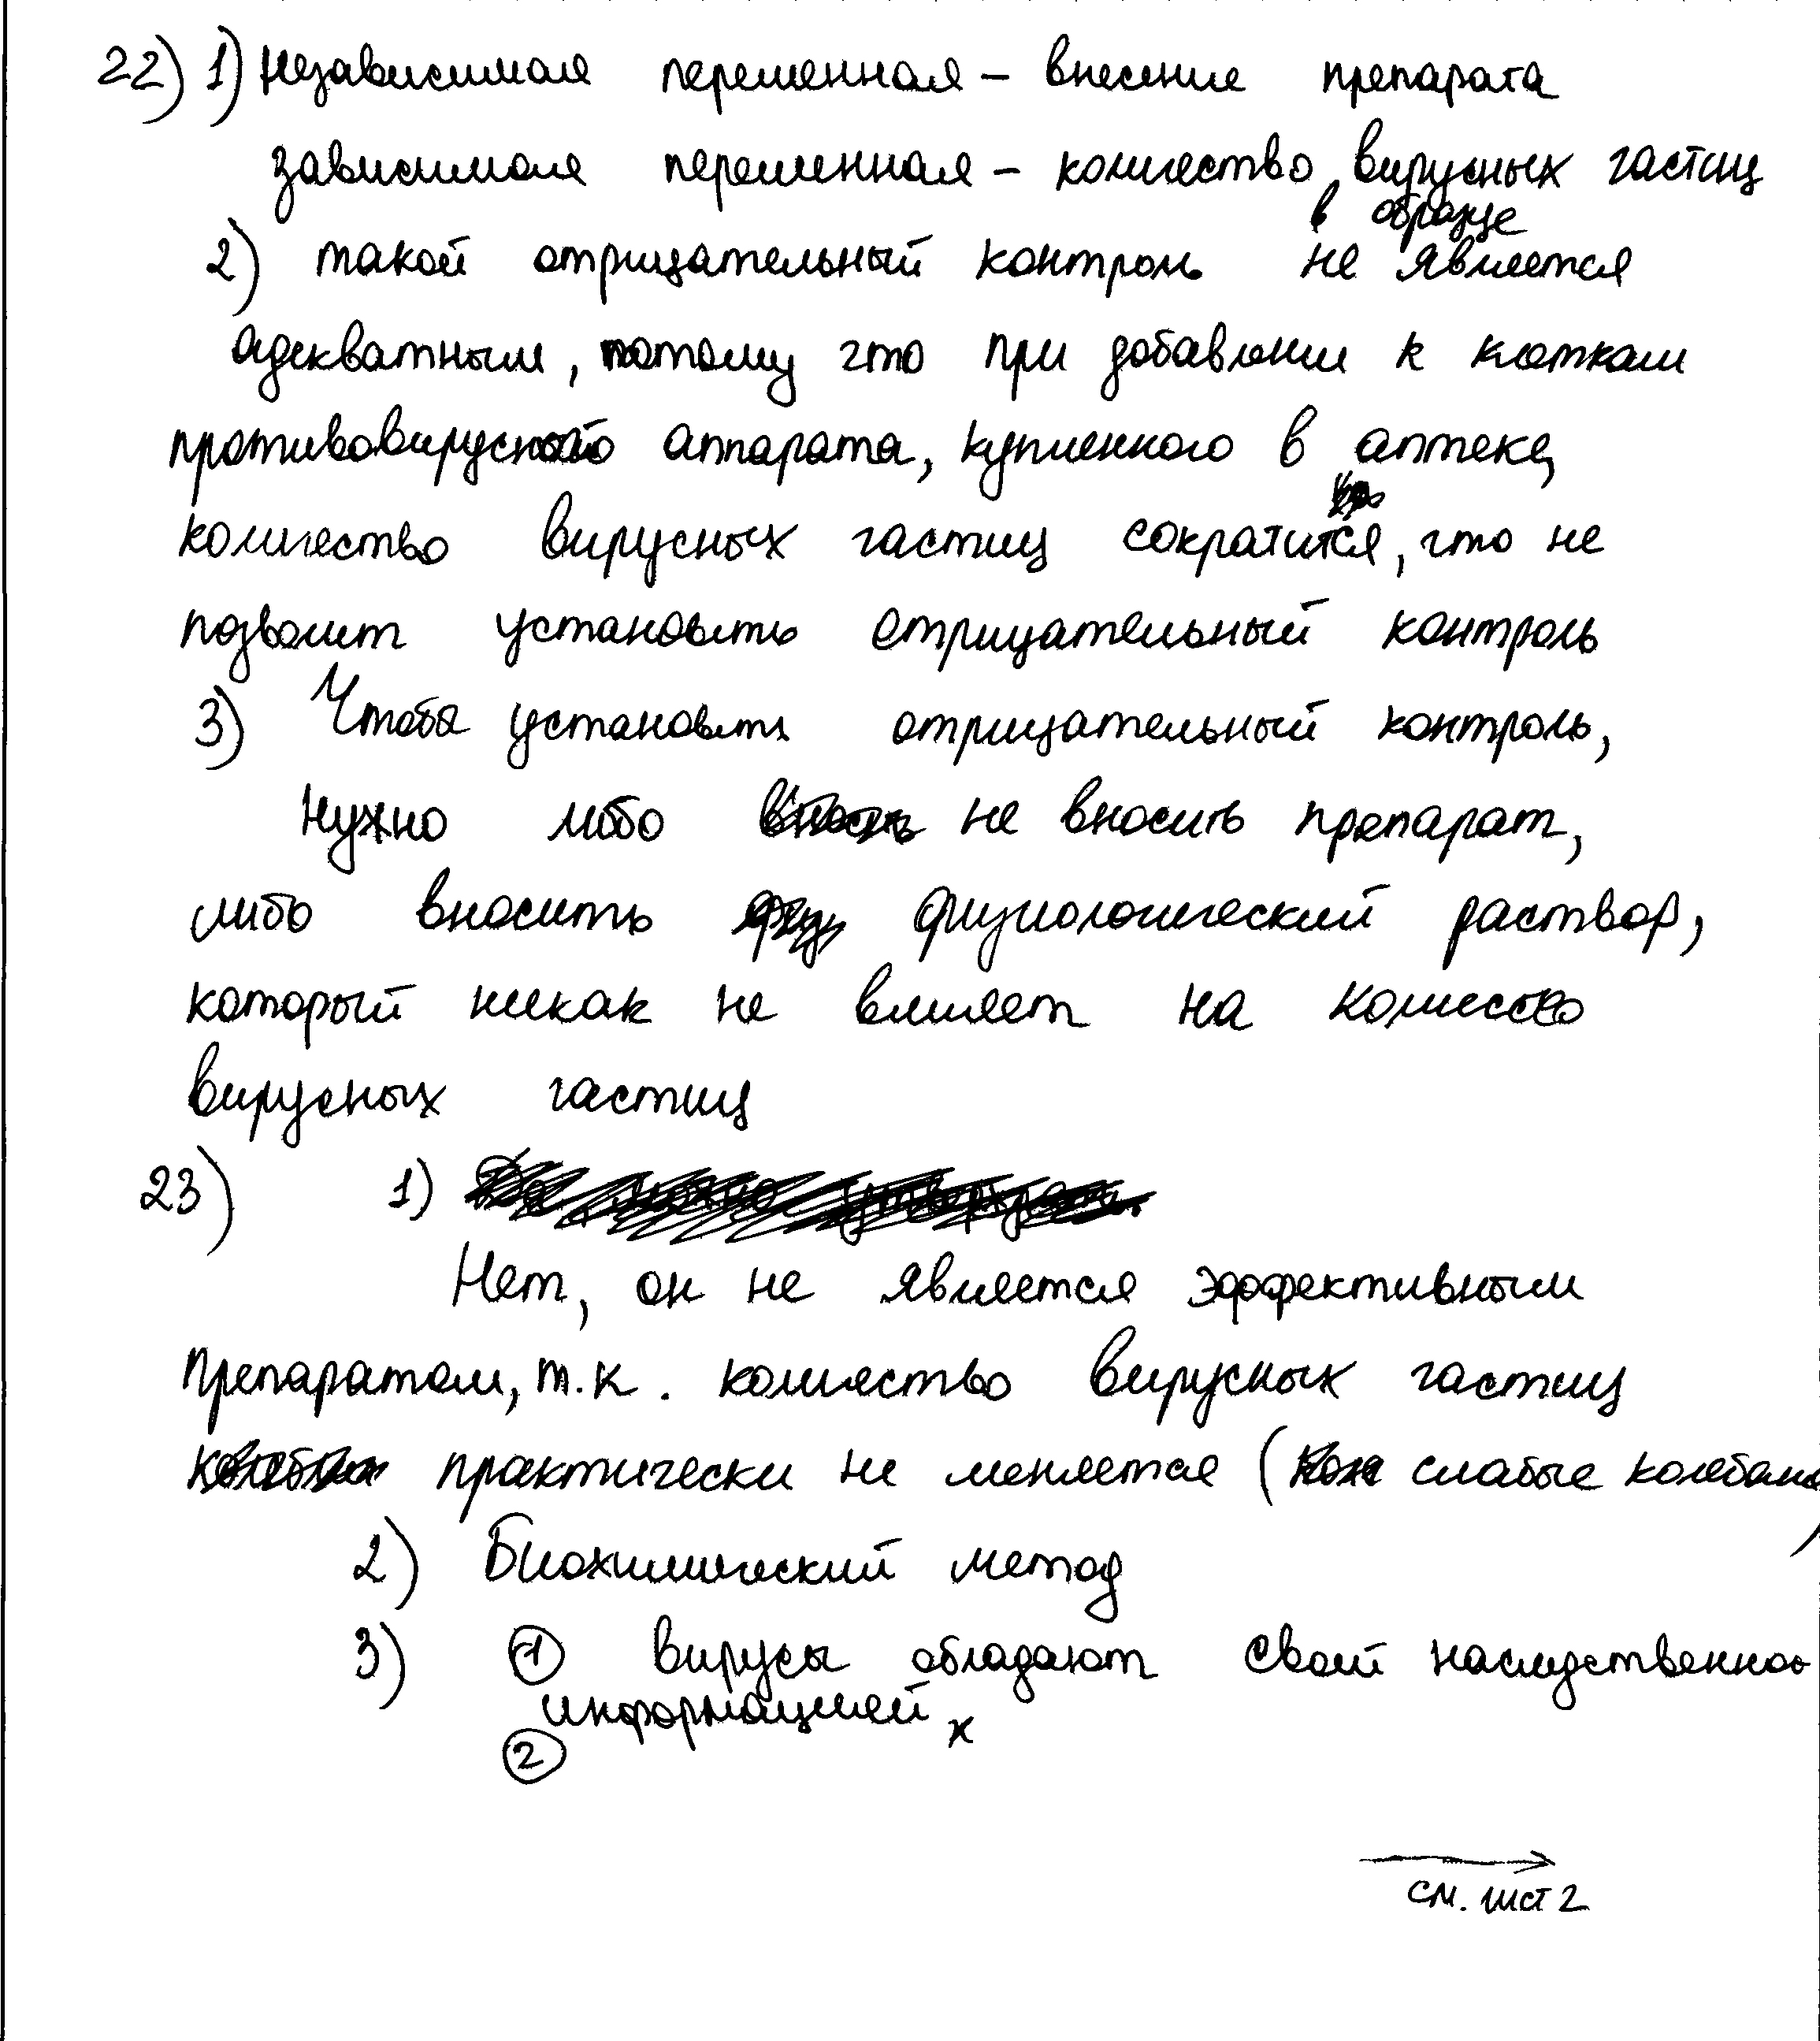 22) 1) Независимая переменная – внесение препарата
зависимая переменная – количество вирусных частиц
в образце
2) такой отрицательный контроль не является
адекватным, потому что при добавлении к клеткам
противовирусного аппарата, купленного в аптеке,
количество вирусных частиц сократится, что не
позволит установить отрицательный контроль
3) Чтобы установить отрицательный контроль,
нужно либо не вносить препарат,
либо вносить физиологический раствор,
который никак не влияет на количество
вирусных частиц
23) 1)
Нет, он не является эффективным
препаратом, т.к. количество вирусных частиц
практически не меняется (слабые колебания)
2) Биохимический метод
3) 1 вирусы обладают своей наследственной
информацией
2
см. лист 2